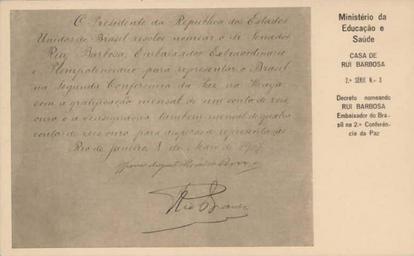 O Presidente da Republica dos Estados
Unidos do Brasil resolve nomear o Sr. Senador
Ruy Barbosa, Embaixador Extraordinario
e Plenipotenciario para representar o Brasil
na Segunda Conferencia da Paz na Haya
com a gratificação mensal de um conto de reis
ouro e a consignação tambem mensal de quatro
contos de reis ouro para despesas de representação.
Rio de Janeiro, de Maio de 1907.
Rio Branco
Ministério da
Educação e
Saúde
CASA DE
RUI BARBOSA
2.ª SÉRIE N.º 3
Decreto nomeando
RUI BARBOSA
Embaixador do Bra-
sil na 2.ª Conferên-
cia da Paz